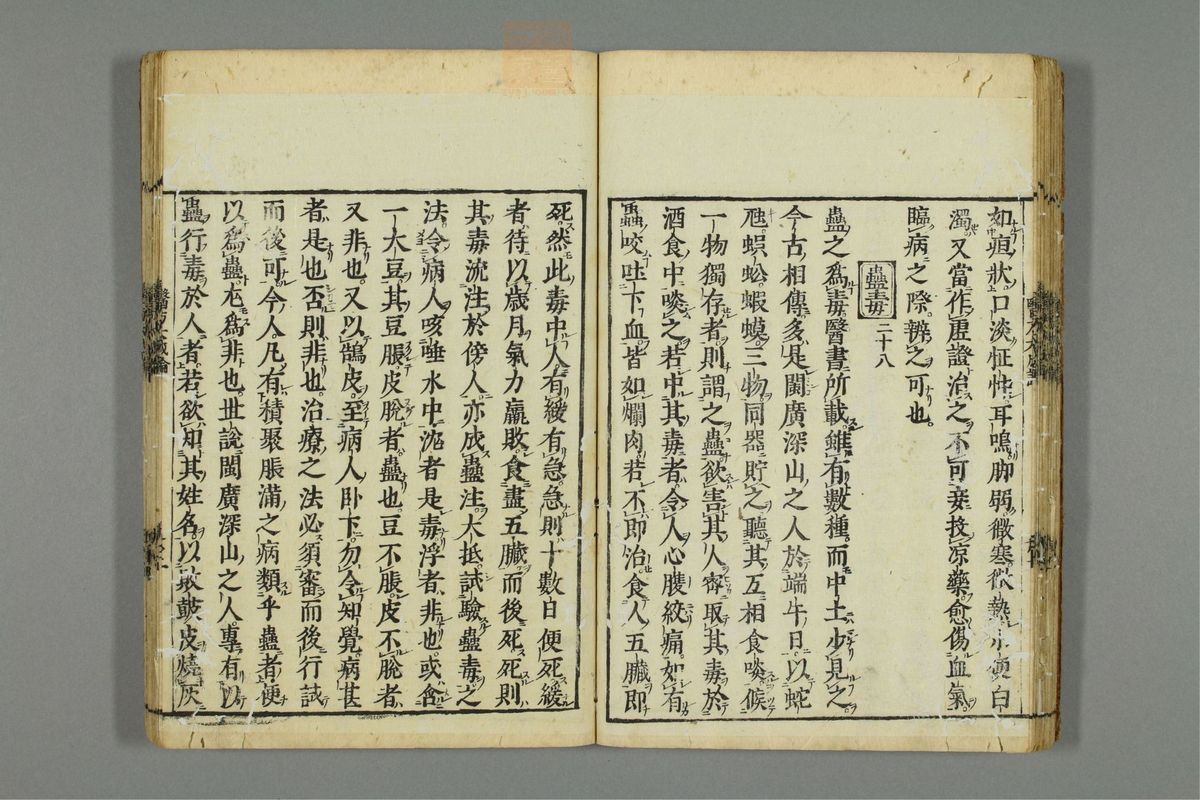 如疸狀口淡怔忪耳鳴脚弱微寒微熱小便白
濁又當作虛證治之不可妄投凉藥愈傷血氣
臨病之際辨之可也
蠱毒 二十八
蠱之爲毒醫書所載雖有數種而中土少見之
今古相傳多是閩廣深山之人於端午日以蛇
虺蜈蚣蝦蟆三物同器貯之聽其互相食啖候
一物獨存者則謂之蠱欲害其人密取其毒於
酒食中啖之若中其毒者令人心腹絞痛如有
蟲咬吐下血皆如爛肉若不即治食人五臟即
死然此毒中人有緩有急急則十數日便死緩
者待以歲月氣力羸敗食盡五臟而後死死則
其毒流注於傍人亦成蠱注大抵試驗蠱毒之
法令病人咳唾水中沈者是毒浮者非也或含
一大豆其豆脹皮脫者蠱也豆不脹皮不脫者
又非也又以鵠皮至病人臥下勿令知覺病甚
者是也否則非也治療之法必須審而後行試
而後可令人凡有積聚脹滿之病類乎蠱者便
以爲蠱尤爲非也世說閩廣深山之人專有以
蠱行毒於人者若欲知其姓名以敗鼓皮燒灰